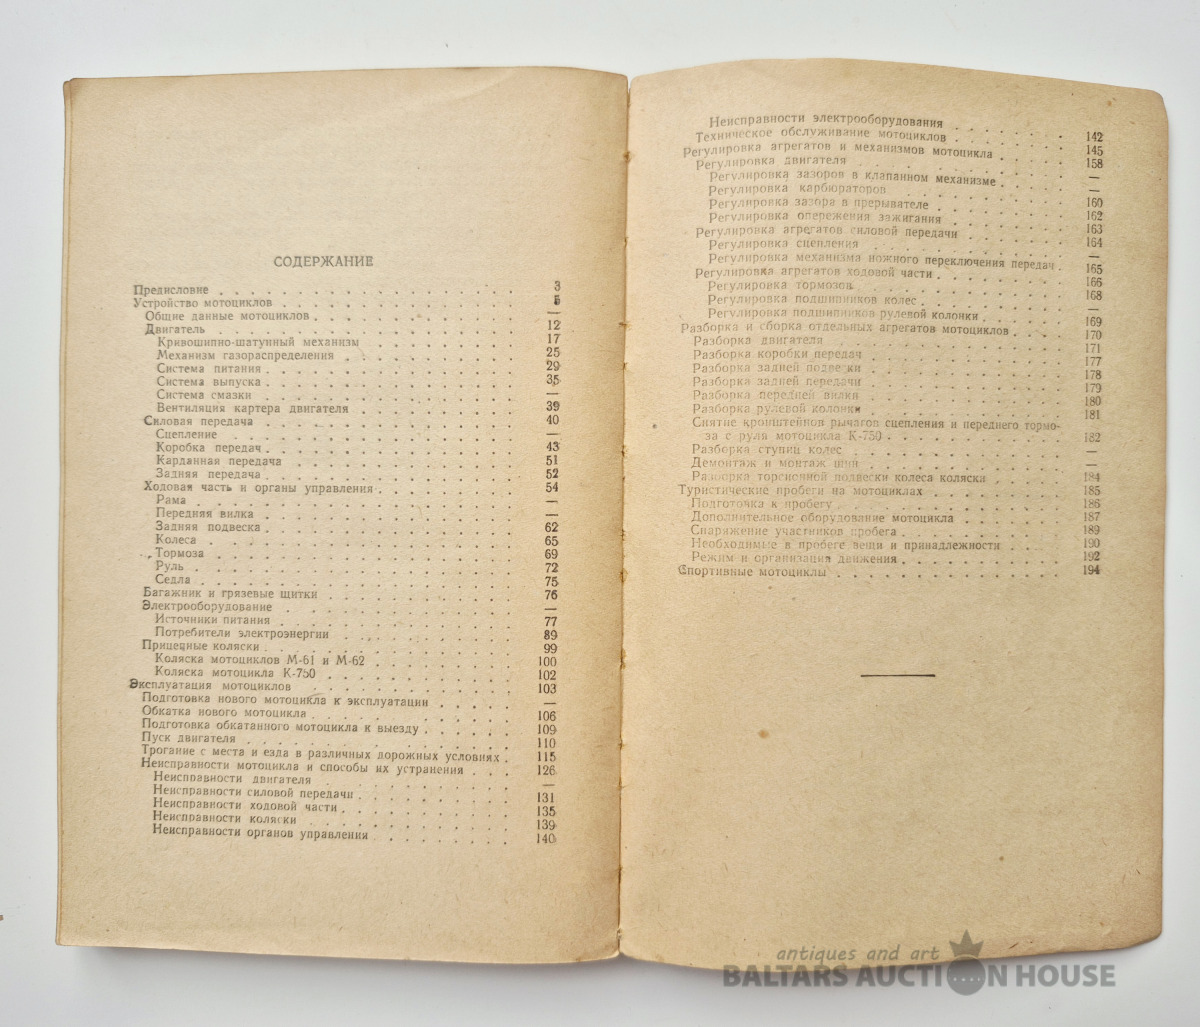 СОДЕРЖАНИЕ
Предисловие . . . 3
Устройство мотоциклов . . . 5
Общие данные мотоциклов . . . —
Двигатель . . . 12
Кривошипно-шатунный механизм . . . 17
Механизм газораспределения . . . 25
Система питания . . . 29
Система выпуска . . . 35
Система смазки . . . —
Вентиляция картера двигателя . . . 39
Силовая передача . . . 40
Сцепление . . . —
Коробка передач . . . 43
Карданная передача . . . 51
Задняя передача . . . 52
Ходовая часть и органы управления . . . 54
Рама . . . —
Передняя вилка . . . —
Задняя подвеска . . . 62
Колеса . . . 65
Тормоза . . . 69
Руль . . . 72
Седла . . . 75
Багажник и грязевые щитки . . . 76
Электрооборудование . . . —
Источники питания . . . 77
Потребители электроэнергии . . . 89
Прицепные коляски . . . 99
Коляска мотоциклов М-61 и М-62 . . . 100
Коляска мотоцикла К-750 . . . 102
Эксплуатация мотоциклов . . . 103
Подготовка нового мотоцикла к эксплуатации . . . —
Обкатка нового мотоцикла . . . 106
Подготовка обкатанного мотоцикла к выезду . . . 109
Пуск двигателя . . . 110
Трогание с места и езда в различных дорожных условиях . 115
Неисправности мотоцикла и способы их устранения . . . 126
Неисправности двигателя . . . —
Неисправности силовой передачи . . . 131
Неисправности ходовой части . . . 135
Неисправности коляски . . . 139
Неисправности органов управления . . . 140
Неисправности электрооборудования . . . 142
Техническое обслуживание мотоциклов . . . 145
Регулировка агрегатов и механизмов мотоцикла . . . 158
Регулировка двигателя . . . —
Регулировка зазоров в клапанном механизме . . . —
Регулировка карбюраторов . . . 160
Регулировка зазора в прерывателе . . . 162
Регулировка опережения зажигания . . . 163
Регулировка агрегатов силовой передачи . . . 164
Регулировка сцепления . . . —
Регулировка механизма ножного переключения передач . 165
Регулировка агрегатов ходовой части . . . 166
Регулировка тормозов . . . 168
Регулировка подшипников колес . . . —
Регулировка подшипников рулевой колонки . . . 169
Разборка и сборка отдельных агрегатов мотоциклов . . . 170
Разборка двигателя . . . 171
Разборка коробки передач . . . 177
Разборка задней подвески . . . 178
Разборка задней передачи . . . 179
Разборка передней вилки . . . 180
Разборка рулевой колонки . . . 181
Снятие кронштейнов рычагов сцепления и переднего тормо-
за с руля мотоцикла К-750 . . . 182
Разборка ступиц колес . . . —
Демонтаж и монтаж шин . . . —
Разборка торсионной подвески колеса коляски . . . 184
Туристические пробеги на мотоциклах . . . 185
Подготовка к пробегу . . . 186
Дополнительное оборудование мотоцикла . . . 187
Снаряжение участников пробега . . . 189
Необходимые в пробеге вещи и принадлежности . . . 190
Режим и организация движения . . . 192
Спортивные мотоциклы . . . 194
antiques and art
BALTARS AUCTION HOUSE